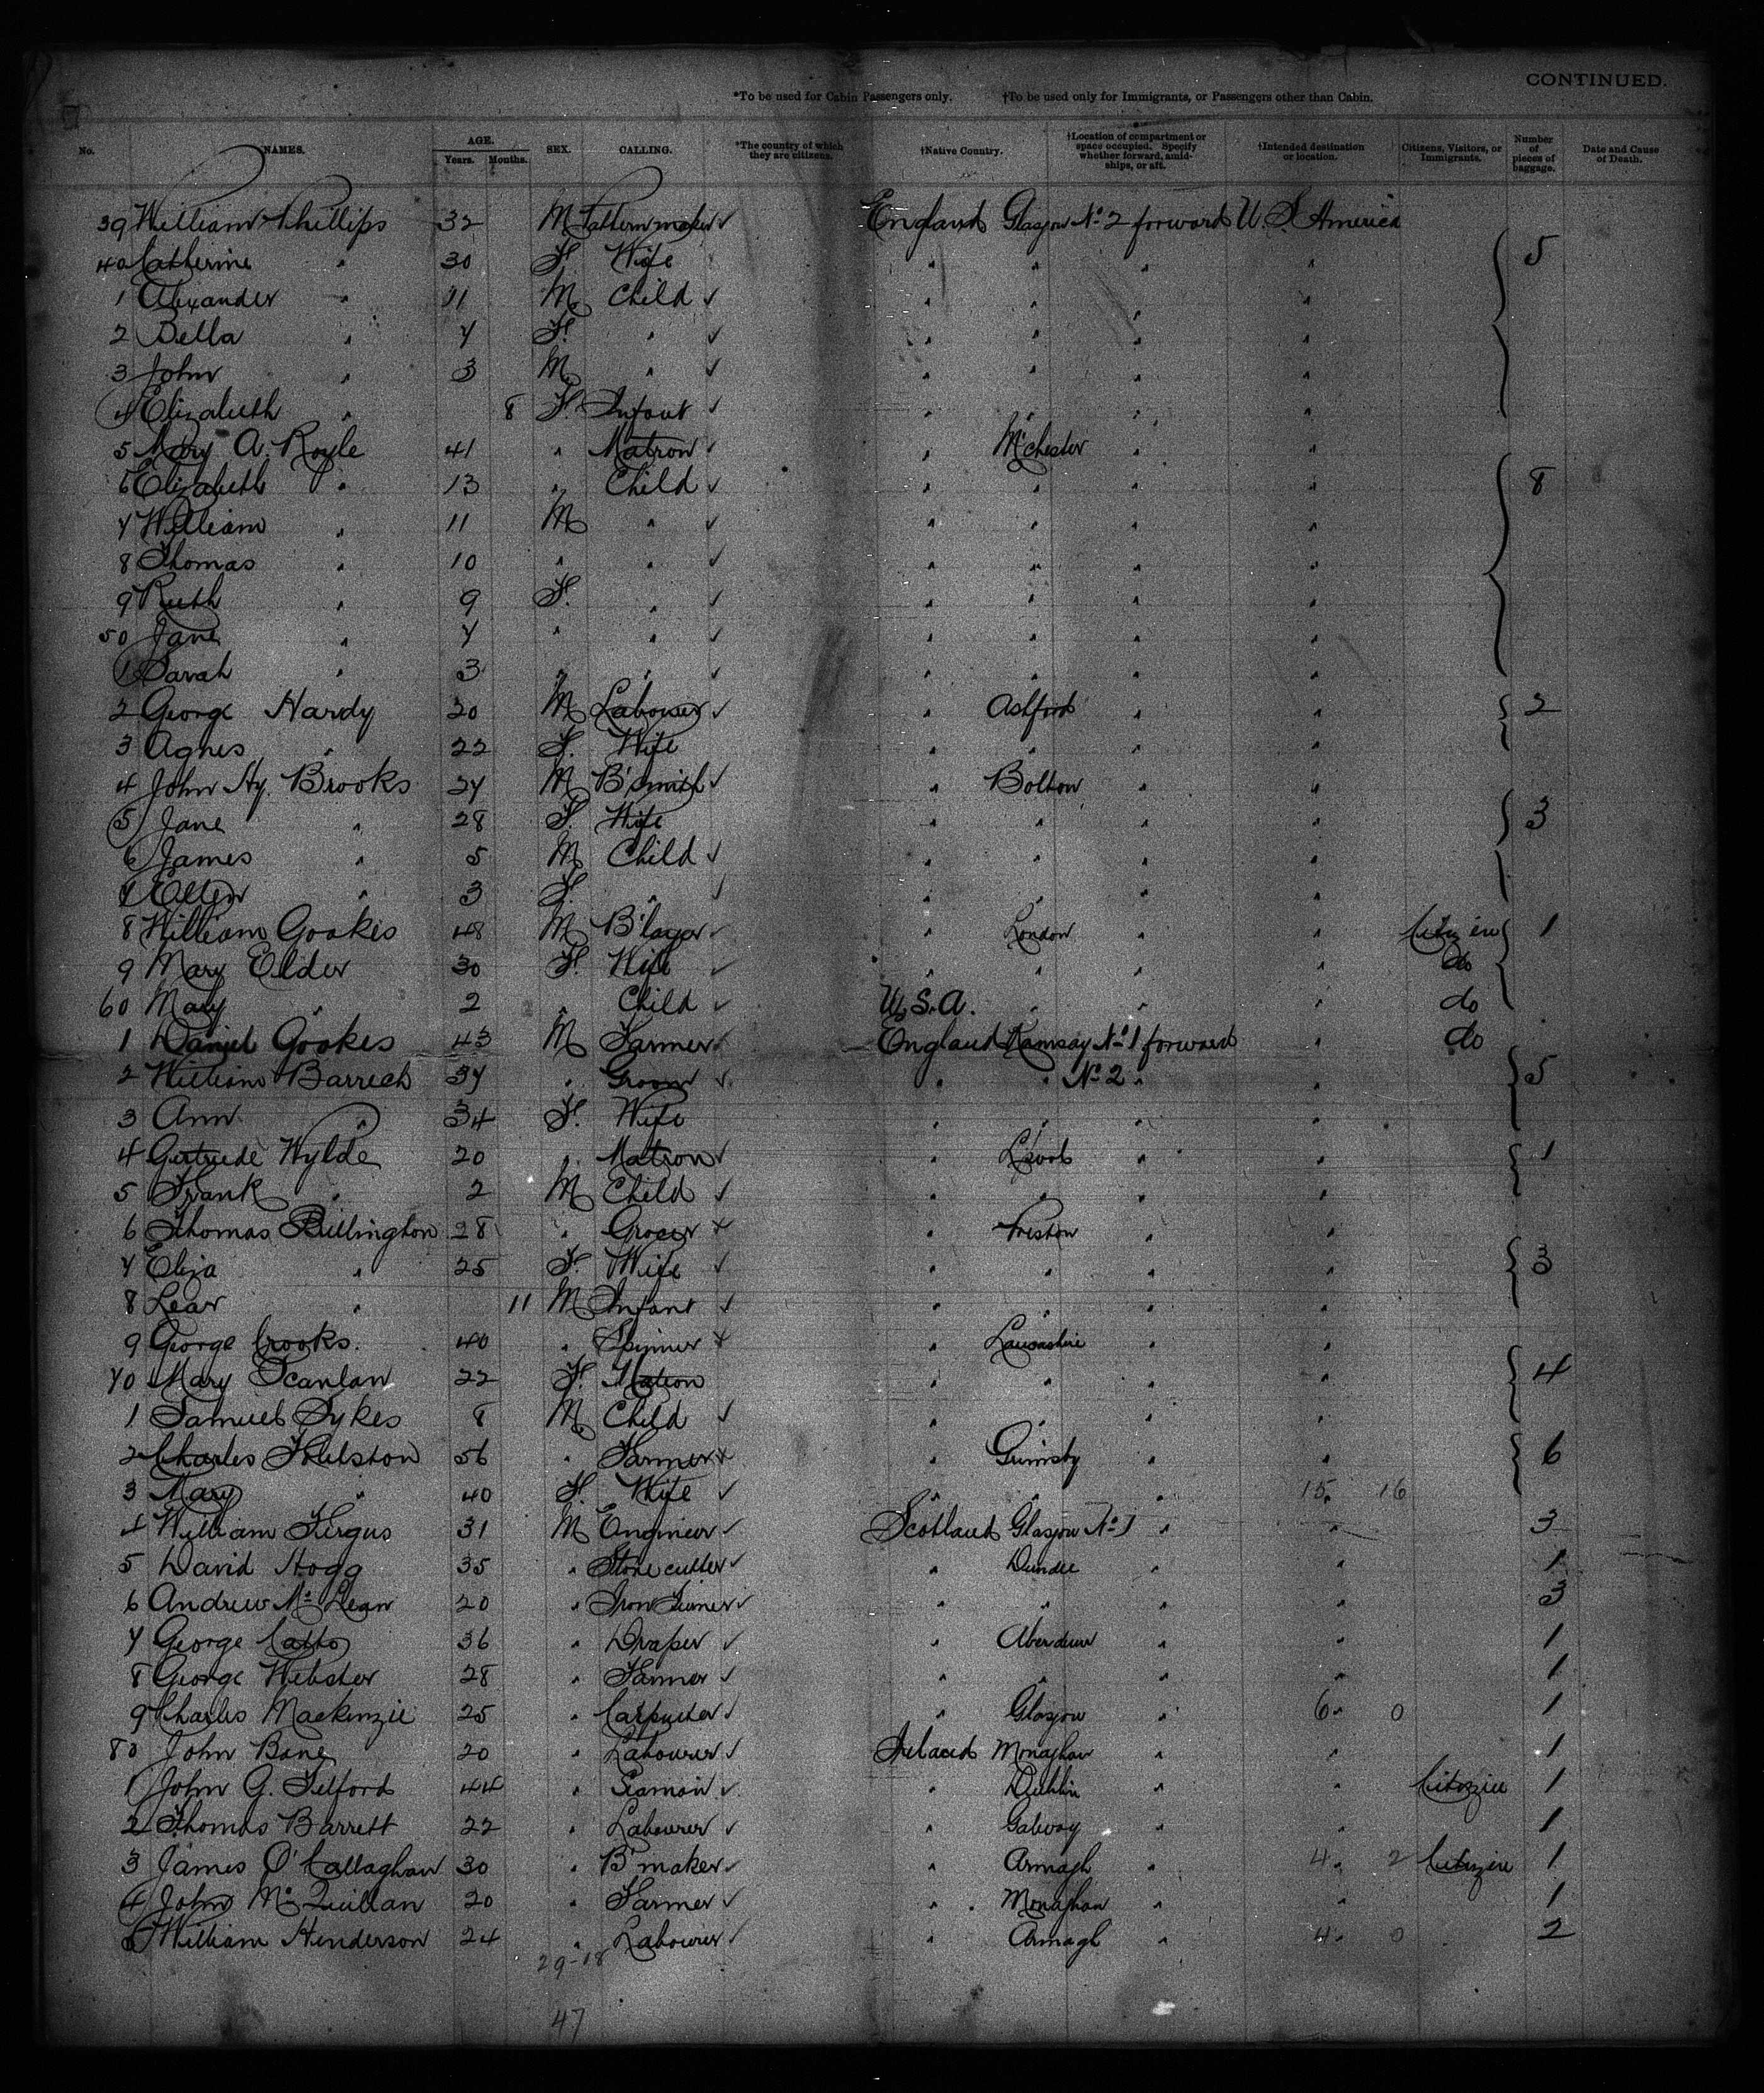 CONTINUED.
*To be used for Cabin Passengers only. †To be used only for Immigrants, or Passengers other than Cabin.
No. NAMES. AGE. Years. Months. SEX. CALLING. *The country of which they are citizens. †Native Country. †Location of compartment or space occupied. Specify whether forward, amidships, or aft. †Intended destination or location. Citizens, Visitors, or Immigrants. Number of pieces of baggage. Date and Cause of Death.
39 William Phillips 32 M Patternmaker ✓ England Glasgow No 2 forward U. S. America
40 Catherine " 30 F. Wife " " " " 5
1 Alexander " 11 M Child ✓ " " " "
2 Della " 7 F. " ✓ " " " "
3 John " 3 M " ✓ " " " "
4 Elizabeth " 8 F. Infant ✓ " " " "
5 Mary A. Royle 41 " Matron ✓ " M'chester " "
6 Elizabeth " 13 " Child ✓ " " " " 8
7 William " 11 M " ✓ " " " "
8 Thomas " 10 " " ✓ " " " "
9 Ruth " 9 F. " ✓ " " " "
50 Jane " 7 " " ✓ " " " "
1 Sarah " 3 " " ✓ " " " "
2 George Hardy 20 M Labourer ✓ " Ashford " " 2
3 Agnes " 22 F. Wife " " " "
4 John Hy. Brooks 27 M B'smith ✓ " Bolton " "
5 Jane " 28 F. Wife " " " " 3
6 James " 5 M Child ✓ " " " "
7 Ellen " 3 F. " ✓ " " " "
8 William Gookes 48 M B'layer ✓ " London " " Citizen 1
9 Mary Elder 30 F. Wife ✓ " " " " do
60 Mary " 2 " Child ✓ U.S.A. " " " do
1 Daniel Gookes 43 M Farmer ✓ England Ramsay No 1 forward " do
2 William Barrech 37 " Groom ✓ " " No 2 " " 5
3 Ann " 34 F. Wife " " " "
4 Gertrude Wylde 20 " Matron ✓ " L'pool " " 1
5 Frank " 2 M Child ✓ " " " "
6 Thomas Billington 28 " Grocer + " Preston " "
7 Eliza " 25 F. Wife ✓ " " " " 3
8 Lear " 11 M. Infant ✓ " " " "
9 George Crooks. 40 " Spinner + " Lancashire " "
70 Mary Scanlan 22 F. Matron " " " " 4
1 Samuel Sykes 8 M Child ✓ " " " "
2 Charles 56 " Farmer + " Grimsby " " 6
3 Mary " 40 F. Wife ✓ " " " 15 16
4 William Fergus 31 M Engineer ✓ Scotland Glasgow No 1 " " 3
5 David Hogg 35 " Stone cutter ✓ " Dundee " " 1
6 Andrew Mc Lean 20 " Iron Turner ✓ " " " " 3
7 George Catto 36 " Draper ✓ " Aberdeen " " 1
8 George Webster 28 " Farmer ✓ " " " " 1
9 Charles Mackenzie 25 " Carpenter ✓ " Glasgow " 6 0 1
80 John Bane 20 " Labourer ✓ Ireland Monaghan " " 1
1 John G. Telford 44 " Seaman ✓ " Dublin " " Citizen 1
2 Thomas Barrett 22 " Labourer ✓ " Galway " " 1
3 James O'Callaghan 30 " B'maker ✓ " Armagh " 4 2 Citizen 1
4 John Mc Quillan 20 " Farmer ✓ " Monaghan " " 1
5 William Henderson 24 " Labourer ✓ " Armagh " 4 0 2
29-18
47